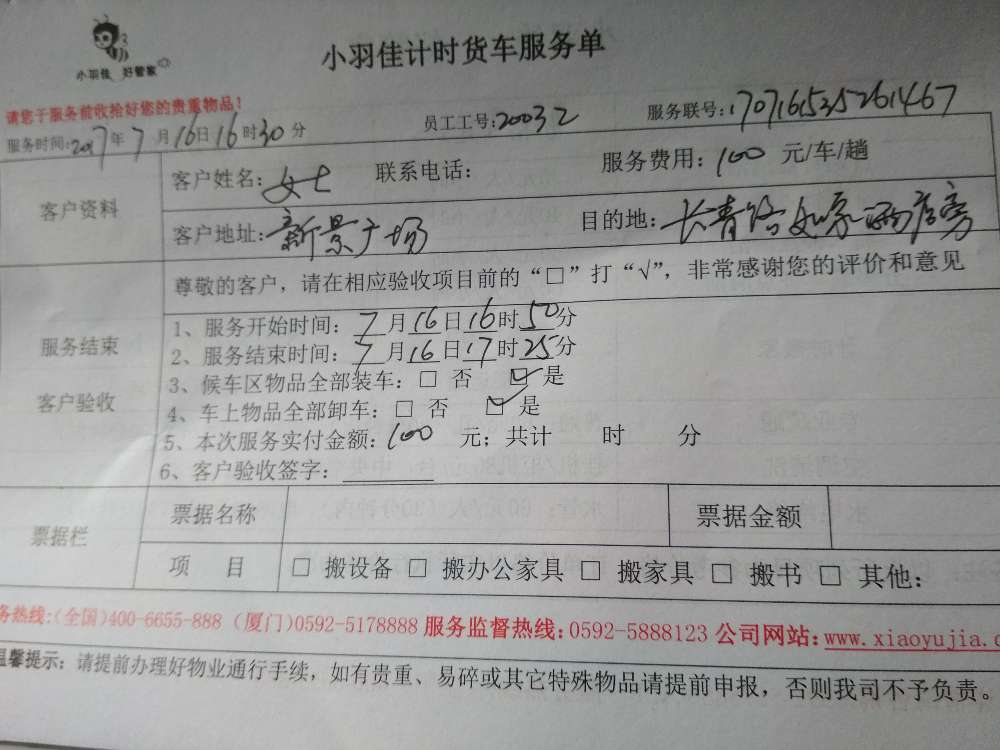 小羽佳 好管家
小羽佳计时货车服务单
请您于服务前收拾好您的贵重物品!
服务时间:2017年7月16日16时30分 员工工号:20032 服务联号:1707161535261467
客户资料
客户姓名:女士 联系电话: 服务费用:100 元/车/趟
客户地址:新景广场 目的地:长青路如家酒店旁
服务结束
客户验收
尊敬的客户,请在相应验收项目前的“□”打“√”,非常感谢您的评价和意见
1、服务开始时间:7月16日16时50分
2、服务结束时间:7月16日17时25分
3、候车区物品全部装车:□ 否 ☑ 是
4、车上物品全部卸车:□ 否 ☑ 是
5、本次服务实付金额:100 元;共计 时 分
6、客户验收签字:
票据栏
票据名称 票据金额
项 目 □ 搬设备 □ 搬办公家具 □ 搬家具 □ 搬书 □ 其他:
务热线:(全国)400-6655-888 (厦门)0592-5178888 服务监督热线:0592-5888123 公司网站:www.xiaoyujia.c
温馨提示:请提前办理好物业通行手续,如有贵重、易碎或其它特殊物品请提前申报,否则我司不予负责。